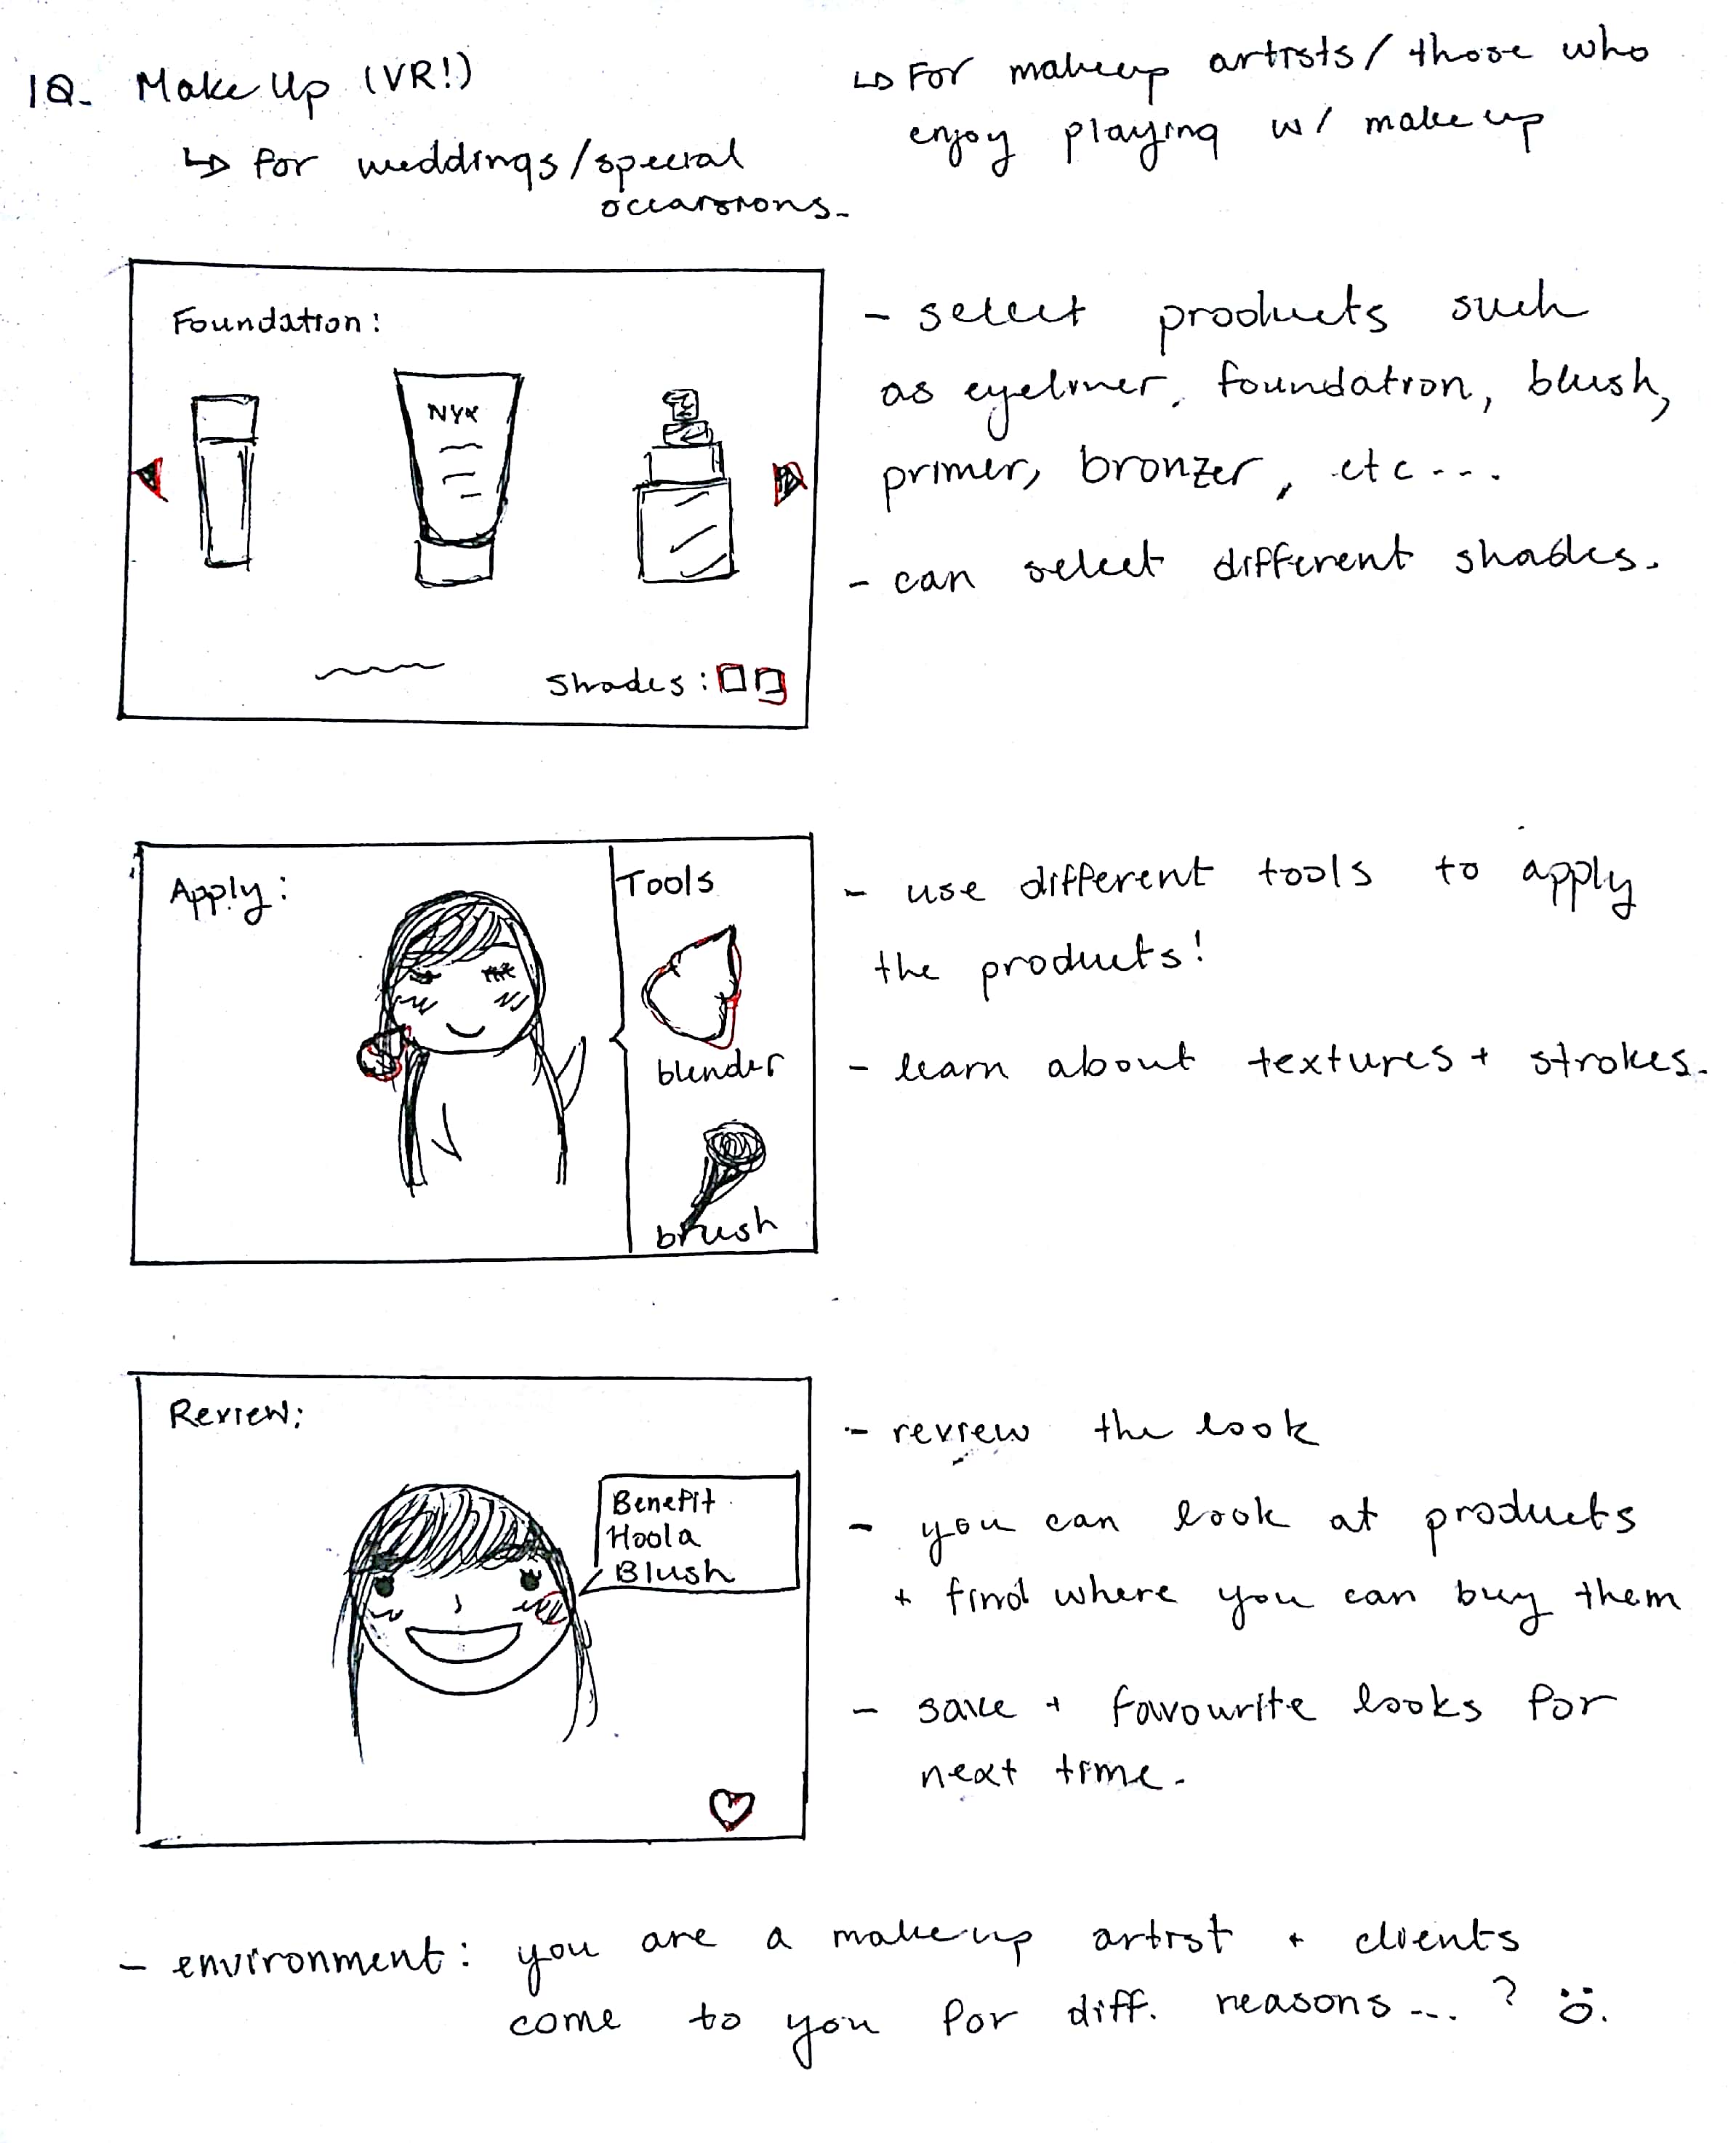 10. Make Up (VR!)
↳ for weddings/special
occassions.
↳ For makeup artists/ those who
enjoy playing w/ makeup
Foundation:
NYX
Shades:
- select products such
as eyeliner, foundation, blush,
primer, bronzer, etc...
- can select different shades.
Apply:
Tools
blender
brush
- use different tools to apply
the products!
- learn about textures + strokes.
Review:
Benefit
Hoola
Blush
- review the look
- you can look at products
+ find where you can buy them
- save + favourite looks for
next time.
- environment: you are a makeup artist + clients
come to you for diff. reasons...?